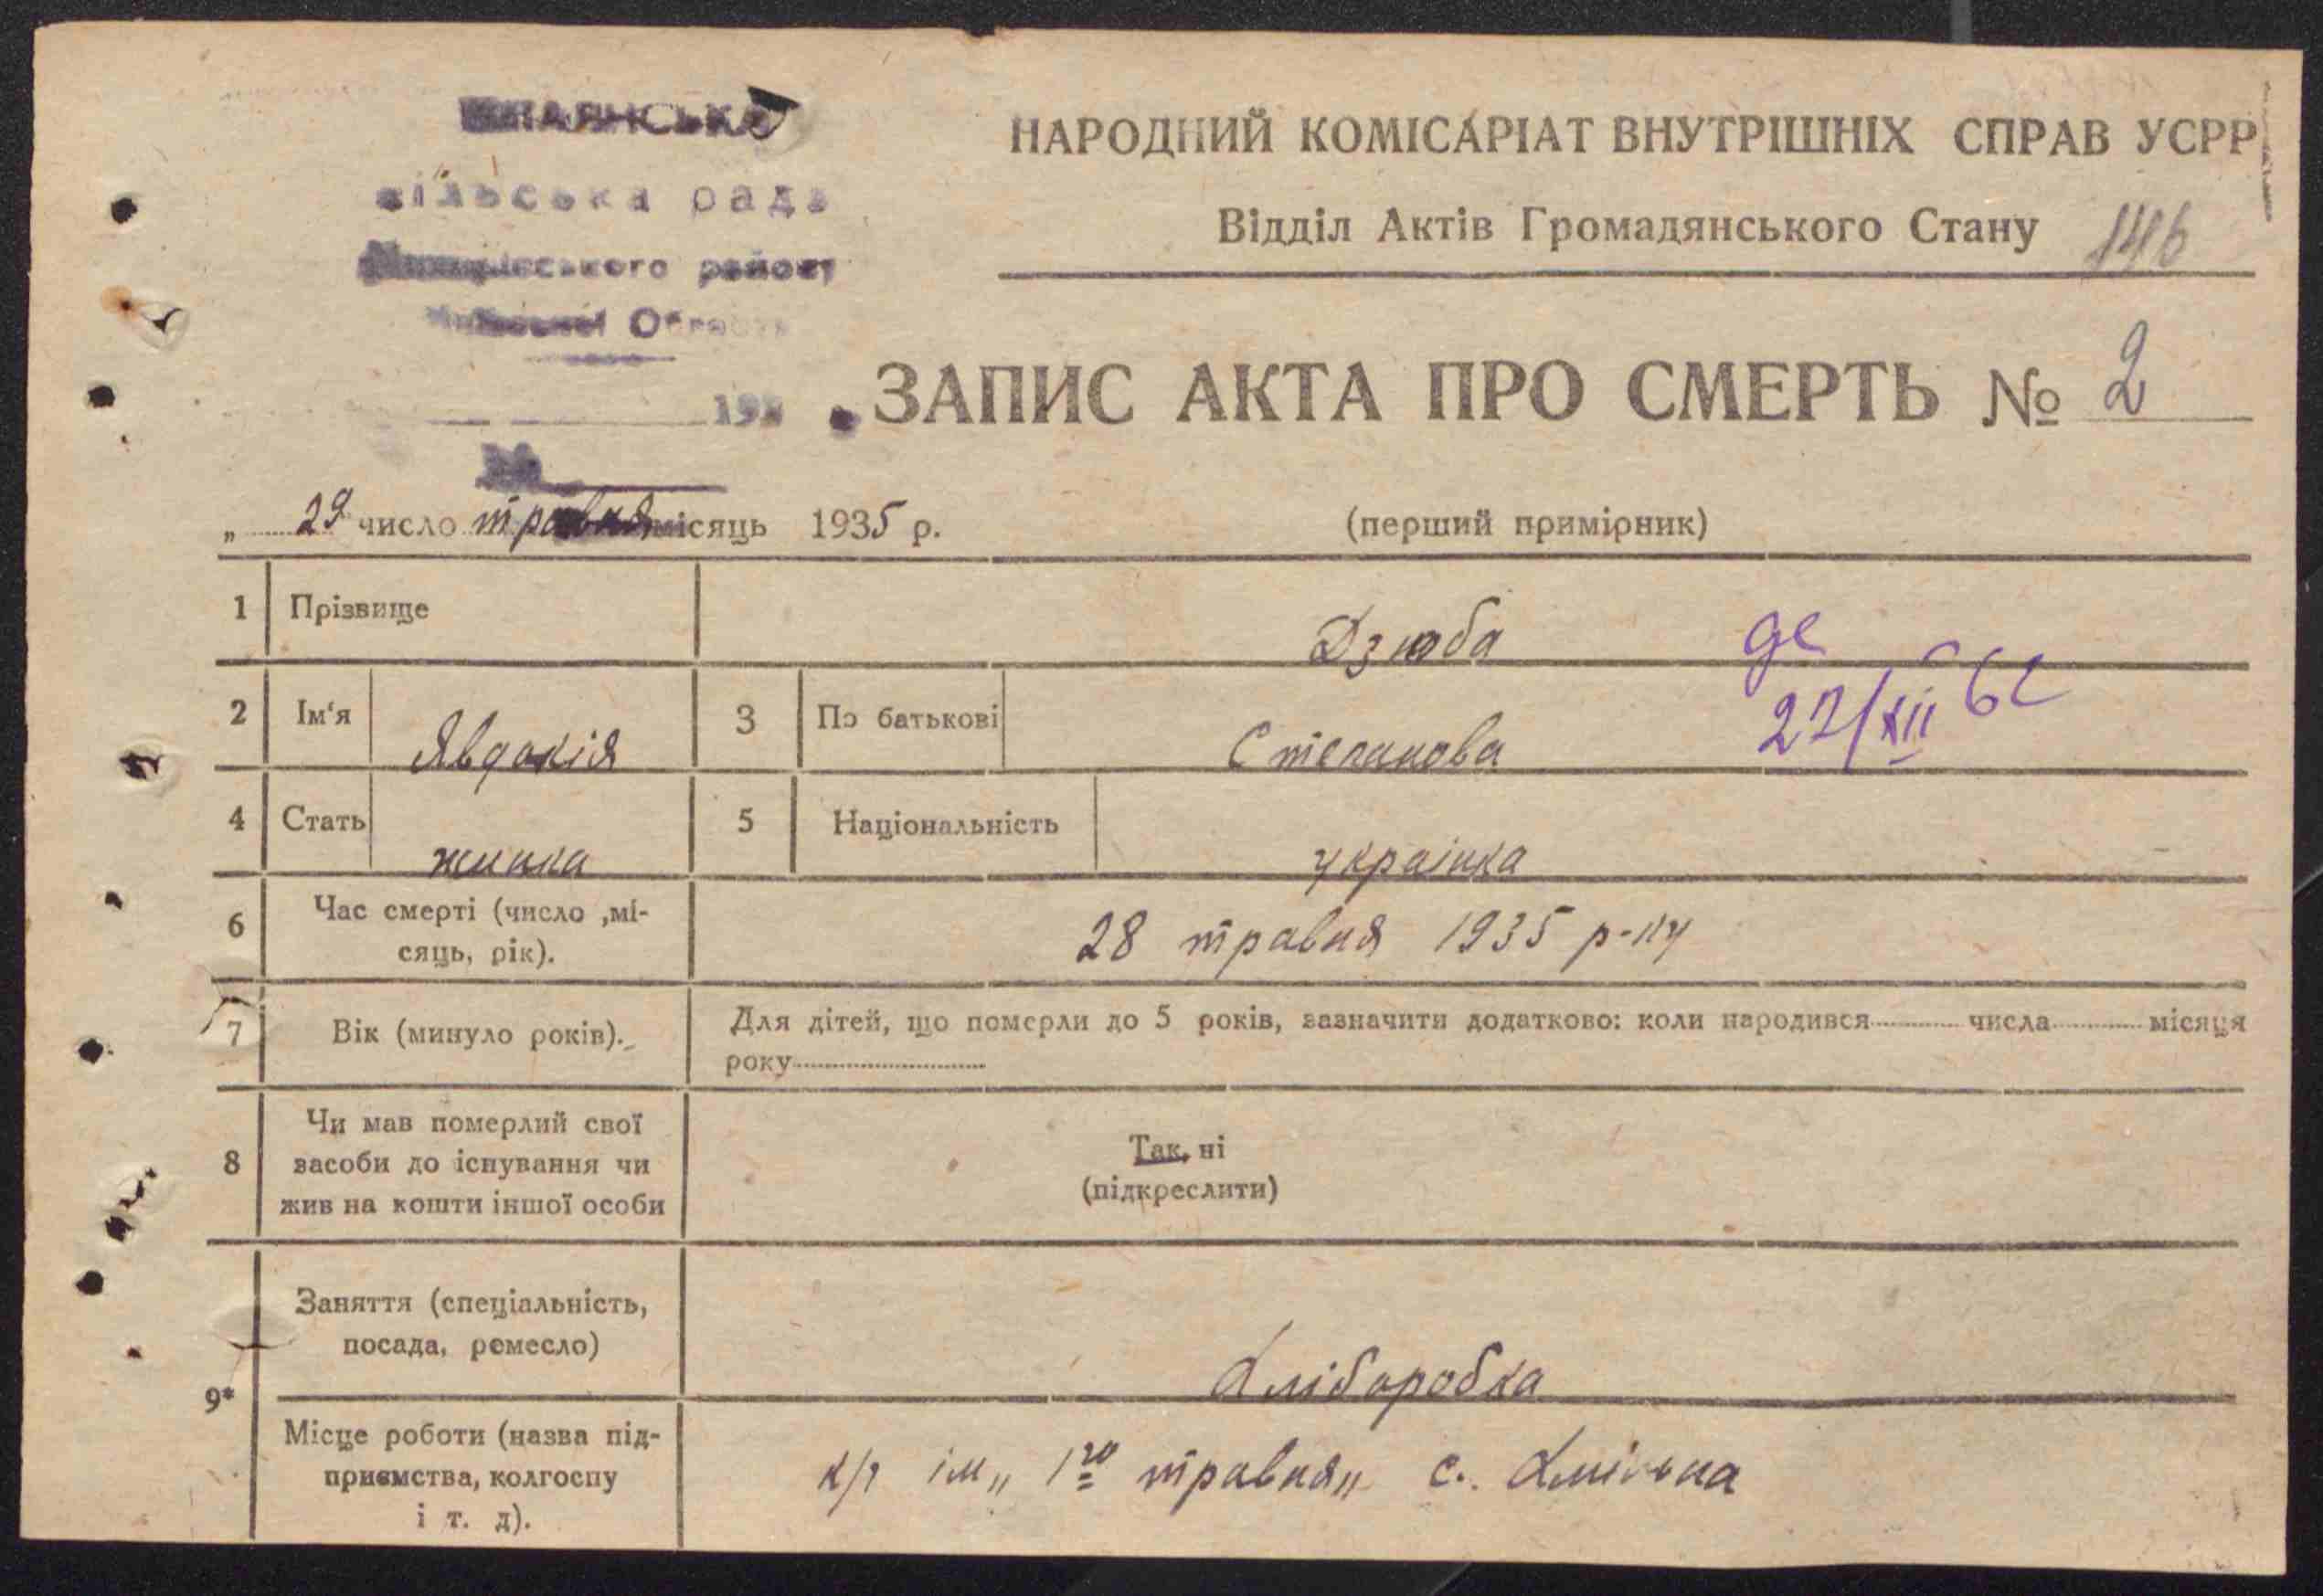 сільська рада
району
193
НАРОДНИЙ КОМІСАРІАТ ВНУТРІШНІХ СПРАВ УСРР
Відділ Актів Громадянського Стану 146
ЗАПИС АКТА ПРО СМЕРТЬ № 2
„ 29 число травня місяць 1935 р.
(перший примірник)
1 Прізвище Дзюба
2 Ім'я Явдокія 3 По батькові Степанова
27/XII 62
4 Стать жинка 5 Національність українка
6 Час смерті (число ,мі-
сяць, рік).
28 травня 1935 р-ку
7 Вік (минуло років).
Для дітей, що померли до 5 років, зазначити додатково: коли народився числа місяця
року
8 Чи мав померлий свої
засоби до існування чи
жив на кошти іншої особи
Так, ні
(підкреслити)
9*
Заняття (спеціальність,
посада, ремесло)
Хліборобка
Місце роботи (назва під-
приємства, колгоспу
і т. д).
к/г ім„ 1го травня„ с.